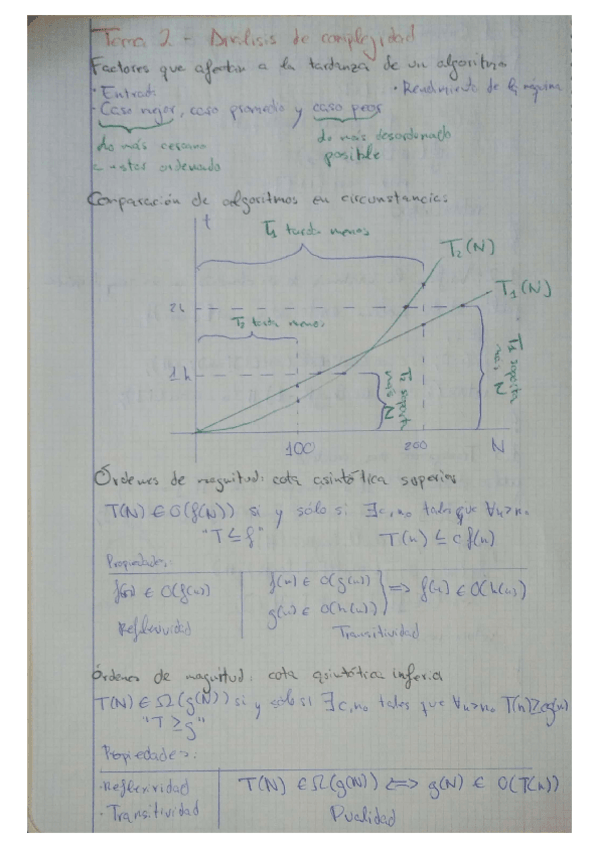 Tema 2 - Análisis de complejidad
Factores que afectan a la tardanza de un algoritmo
· Entrada · Rendimiento de la máquina
· Caso mejor, caso promedio y caso peor
lo más cercano a estar ordenado
lo más desordenado posible
Comparación de algoritmos en circunstancias
t
T1 tarda menos
T2(N)
T1(N)
2h
T2 tarda menos
1h
T2 soporta más N
T1 soporta más N
100 200 N
Órdenes de magnitud: cota asintótica superior
T(N) ∈ O(f(N)) si y sólo si ∃c,n0 tales que ∀n>n0
"T ≤ f" T(n) ≤ c f(n)
Propiedades:
f(n) ∈ O(f(n))
Reflexividad
f(n) ∈ O(g(n))
g(n) ∈ O(h(n)) ⟹ f(n) ∈ O(h(n))
Transitividad
Órdenes de magnitud: cota asintótica inferior
T(N) ∈ Ω(g(N)) si y sólo si ∃c,n0 tales que ∀n>n0 T(n) ≥ cg(n)
"T ≥ g"
Propiedades:
· Reflexividad
· Transitividad
T(N) ∈ Ω(g(N)) ⟺ g(N) ∈ O(T(n))
Dualidad